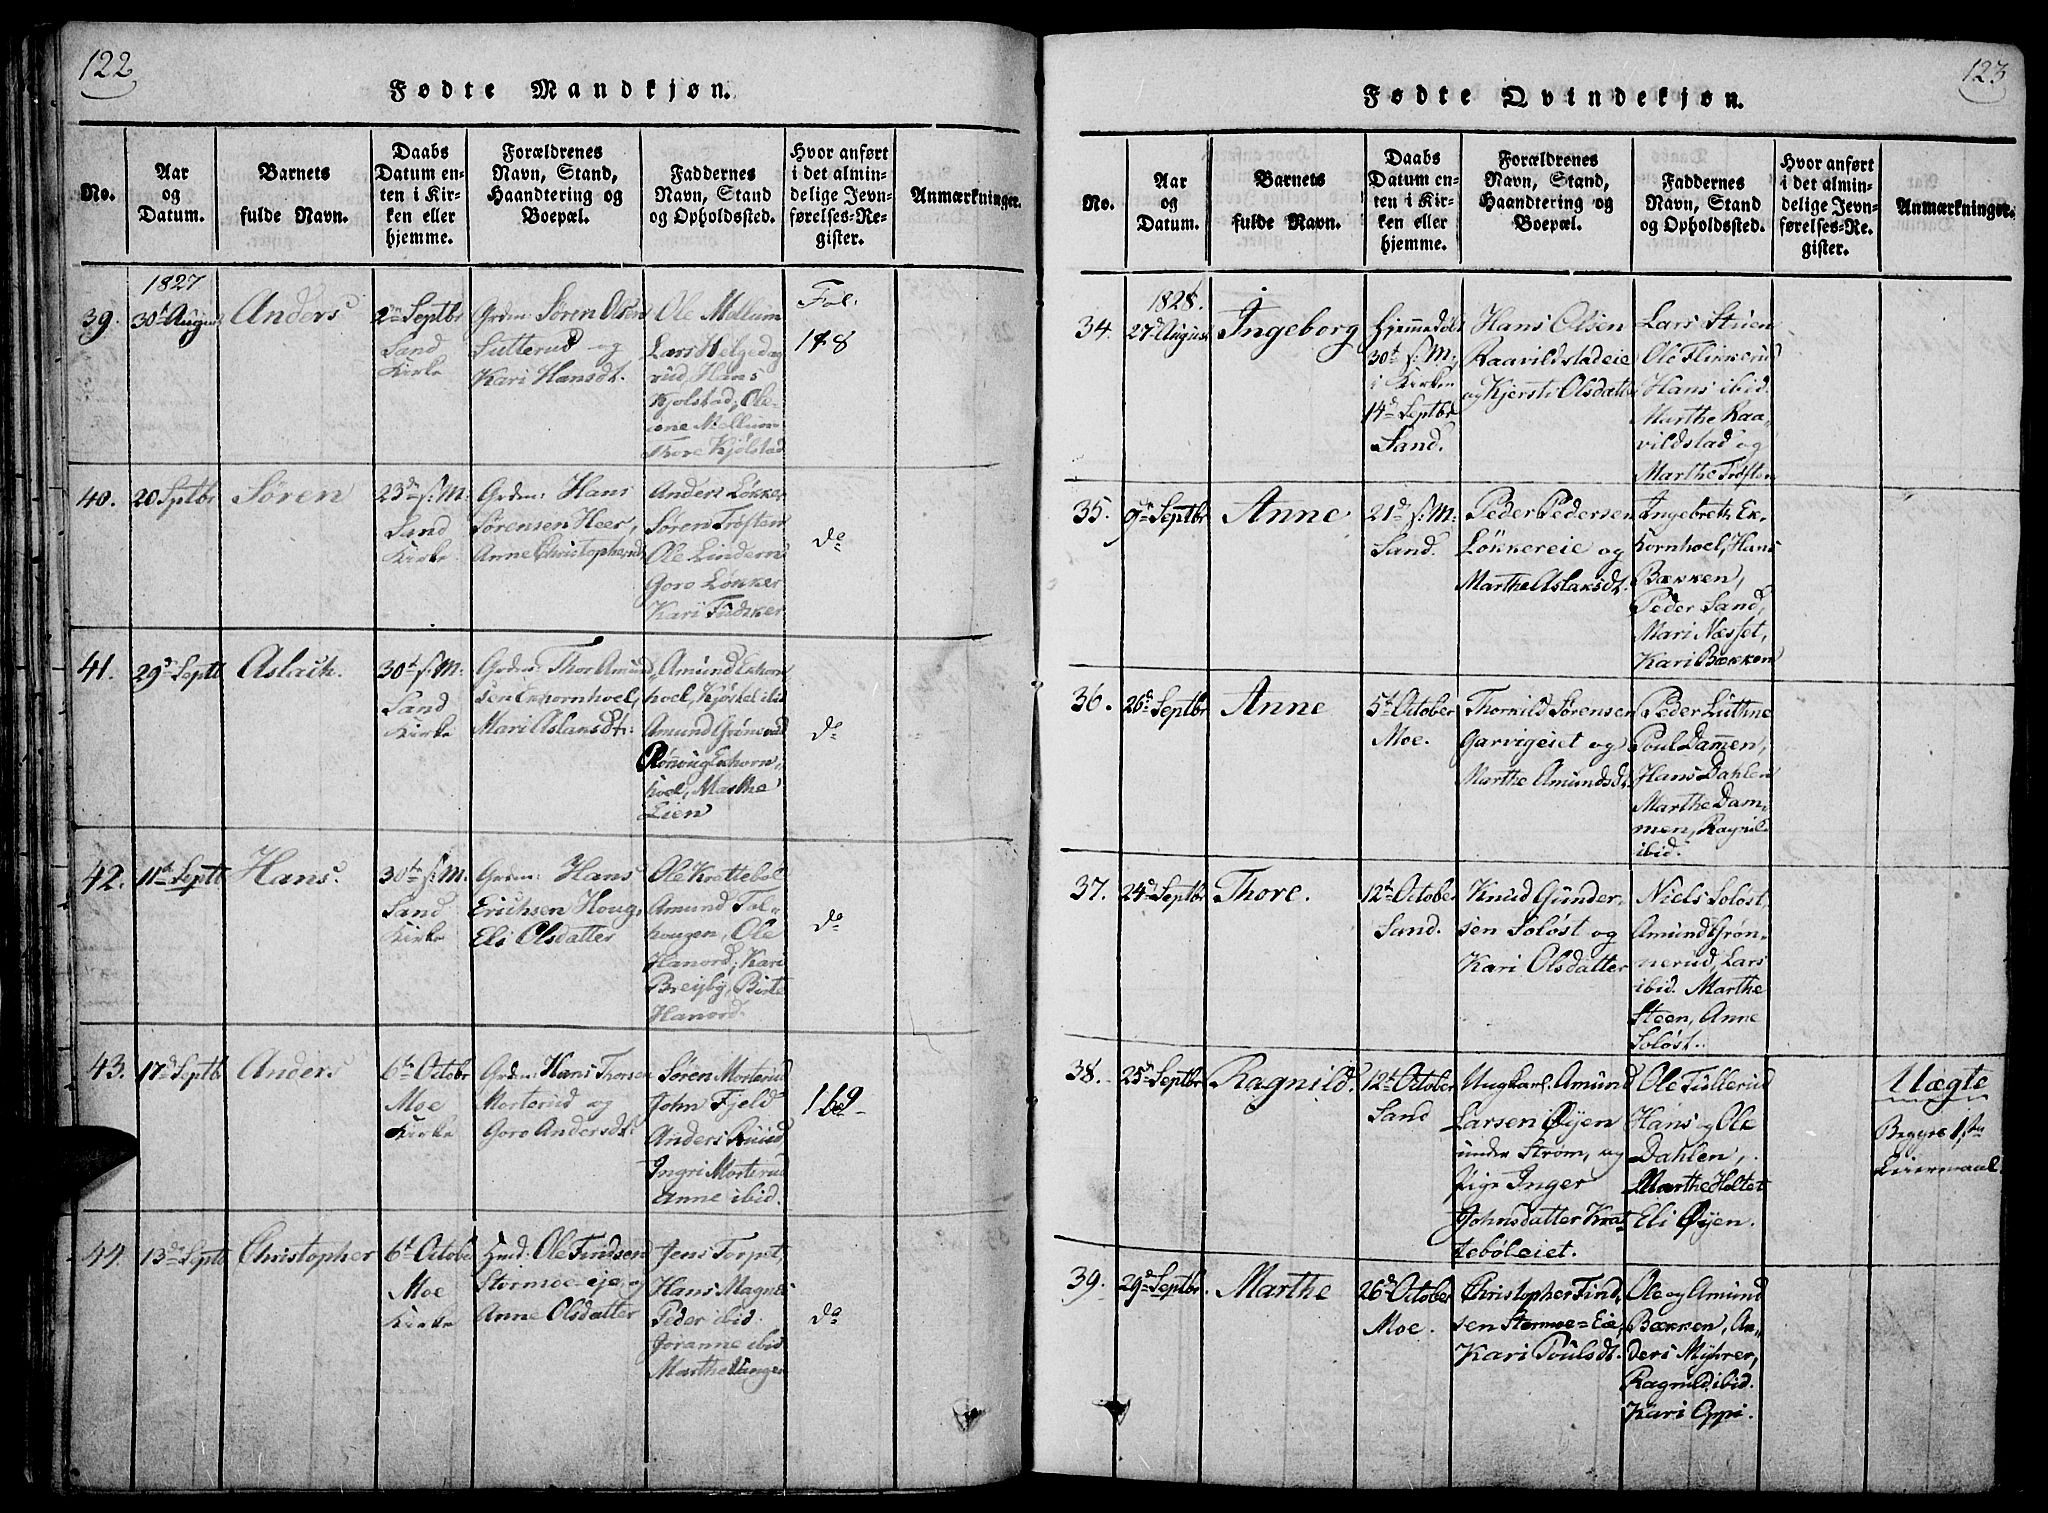 122
Fødte Mandkjøn.
No.
Aar
og
Datum.
Barnets
fulde Navn.
Daabs
Datum en-
ten i Kir-
ken eller
hjemme.
Forældrenes
Navn, Stand,
Haandtering og
Boepæl.
Faddernes
Navn, Stand
og Opholdssted.
Hvor anført
i det almin-
delige Jevn-
førelses-Re-
gister.
Anmærkninger.
1827
39.
30t August
Anders
2den Septbr
Sand
Kirke
Grdm: Søren Olsen
Sutterud og
Kari Hansdt.
Ole Mellum
Lars Helged
rud, Hans
Kjolstad, Ole
Mellum
Thore Kjølstad
Fol:
148
40.
20 Sptbr
Søren
23de s: M:
Sand
Kirke
Grdm: Hans
Sørensen Heer,
Anne Christophersd
Anders Løkker
Søren Trøsten
Ole Lindern
Goro Løkker
Kari Fudsker
do
41.
29d Septb
Aslack.
30t s: M:
Sand
Kirke
Grdm: Thor Amund
sen Ekornhoel,
Mari Aslaksdt.
Amund Ekorn
hoel, Kjøstel ibid
Amund Grønerud
Rønnoug Ekhorn
hoel, Marthe
Lien
do
42.
11t Septb
Hans.
30t s: M.
Sand
Kirke
Grdm: Hans
Erichsen Houg,
Eli Olsdatter
Ole Krattebøl
Amund Tol-
hougen, Ole
Hanord, Kari
Breyby, Birte
Hanord.
do
43.
17d Septbr
Anders
6te Octobr
Moe
Kirke
Grdm: Hans Thorsen
Morterud og
Goro Andersdt.
Søren Morterud
John Fjeld
Anders Ruud
Ingri Morterud
Anne ibid.
169
44.
13de Septb
Christopher
6t October
Moe
Kirke
Huusd: Ole Findsen
Stormoe-eje, og
Anne Olsdatter
Jens Torpet,
Hans Magnes
Peder ibid.
Joranne ibid
Marthe Vinger
do
123
Fødte Qvindekjøn.
No.
Aar
og
Datum.
Barnets
fulde Navn.
Daabs
Datum en-
ten i Kir-
ken eller
hjemme.
Forældrenes
Navn, Stand,
Haandtering og
Boepæl.
Faddernes
Navn, Stand
og Opholdssted.
Hvor anført
i det almin-
delige Jevn-
førelses-Re-
gister.
Anmærkninger.
1828.
34.
27d August
Ingeborg
Hjemmedøbt
30t s: M:
i Kirken
14de Septbr
Sand.
Hans Olsen
Raavildstadeie
og Kjersti Olsdatter
Lars Stuen
Ole Flikkerud
Hans ibid.
Marthe Raa-
vildstad og
Marthe Trøsten
35.
9de Septbr
Anne
21de s: M:
Sand.
Peder Pedersen
Løkkereie og
Marthe Aslaksdt.
Ingebret Ek-
kornhoel, Hans
Bækken,
Peder Sand,
Mari Næsset,
Kari Bækken
36.
26d Septbr
Anne
5t October
Moe.
Thorkild Sørensen
Garvigeiet og
Marthe Amundsdt.
Peder Luthne
Poul Dammen,
Hans Dahlen
Marthe Dam-
men, Ragnild
ibid.
37.
24d Septbr
Thore.
12t October
Sand.
Knud Gunder-
sen Soløst og
Kari Olsdatter
Niels Soløst,
Amund Grøn-
nerud, Lars
ibid. Marthe
Steen, Anne
Soløst.
38.
25d Septbr
Ragnild.
12t October
Sand
Ungkarl: Amund
Larsen Øyen
under Strøm, og
Pige Inger
Johnsdatter Krat
tebøleiet.
Ole Tullerud
Hans og Ole
Dahlen,
Marthe Holtet
Eli Øyen.
Uægte
Begges 1ste
Leiermaal
39.
29d Septbr.
Marthe
26d October
Moe.
Christopher Find-
sen Stormoe-Eie,
Kari Poulsdt.
Ole og Amund
Bækken, An-
ders Myhrer,
Ragnild ibid.
Kari Oppi.